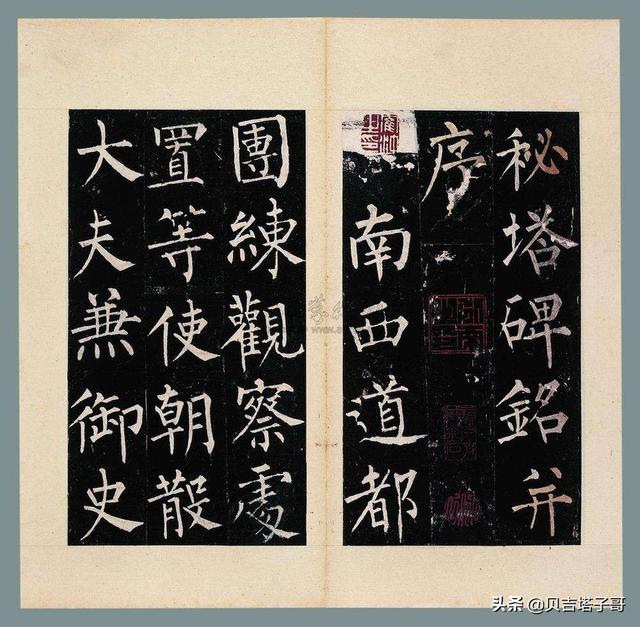 秘塔碑銘并
序
南西道都
團練觀察處
置等使朝散
大夫兼御史
头条 @贝吉塔子哥